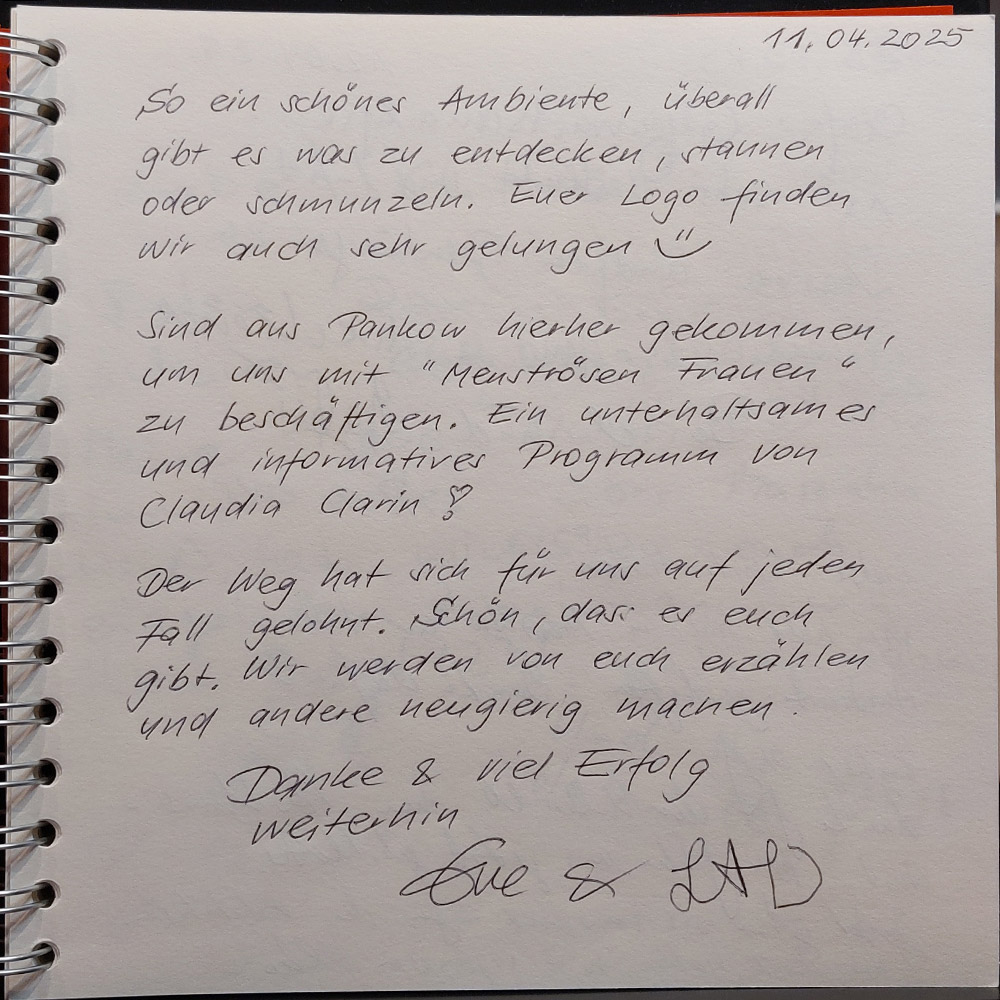 11.04.2025
So ein schönes Ambiente, überall
gibt es was zu entdecken, staunen
oder schmunzeln. Euer Logo finden
wir auch sehr gelungen
Sind aus Pankow hierher gekommen,
um uns mit "Menströsen Frauen"
zu beschäftigen. Ein unterhaltsames
und informatives Programm von
Claudia Clarin
Der Weg hat sich für uns auf jeden
Fall gelohnt. Schön, dass es euch
gibt. Wir werden von euch erzählen
und andere neugierig machen.
Danke & viel Erfolg
weiterhin
Eve &